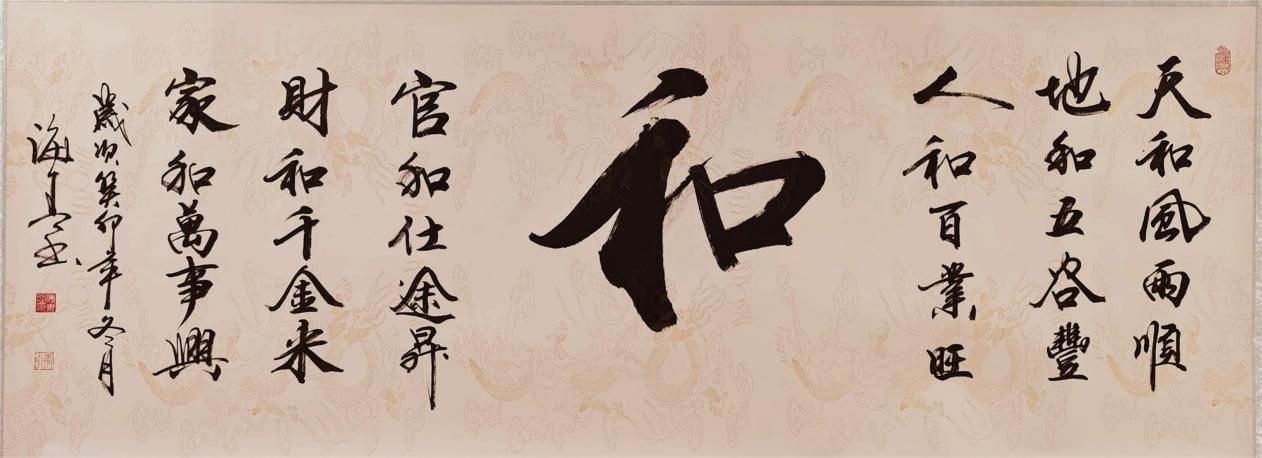 天和風雨順
地和五谷豐
人和百業旺
和
官和仕途昇
財和千金来
家和萬事興
歲次癸卯年冬月
海